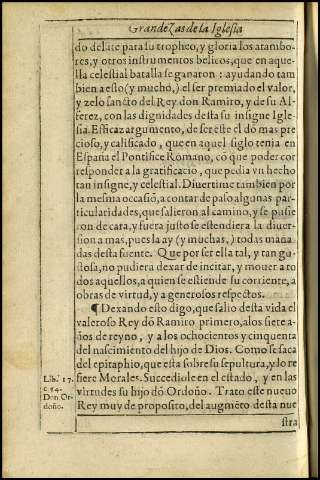 Grandezas de la Iglesia
do delāte para su tropheo, y gloria los atambo-
res, y otros instrumentos belicos, que en aque-
lla celestial batalla se ganaron: ayudando tam
bien a esto (y mucho,) el ser premiado el valor,
y zelo sancto del Rey don Ramiro, y de su Al-
ferez, con las dignidades desta su insigne Igle-
sia. Efficaz argumento, de ser este el dō mas pre
cioso, y calificado, que en aquel siglo tenia en
España el Pontifice Romano, cō que poder cor
responder a la gratificació, que pedia vn hecho
tan insigne, y celestial. Diuertime tambien por
la mesma occasiō, a contar de paso algunas par-
ticularidades, que salieron al camino, y se pusie
ron de cara, y fuera justo se estendiera la diuer-
sion a mas, pues la ay (y muchas,) todas mana
das desta fuente. Que por ser ella tal, y tan gu-
stosa, no pudiera dexar de incitar, y mouer a to
dos aquellos, a quien se estiende su corriente, a
obras de virtud, y a generosos respectos.
¶ Dexando esto digo, que salio desta vida el
valeroso Rey dō Ramiro primero, a los siete a-
ños de reyno, y a los ochocientos y cinquenta
del nascimiento del hijo de Dios. Como se saca
del epitaphio, que esta sobre su sepultura, y lo re
fiere Morales. Succediole en el estado, y en las
virtudes su hijo dō Ordoño. Trato este nueuo
Rey muy de proposito, del augmēto desta nue
stra
Lib. 17.
c. 54.
Don Or-
doño.